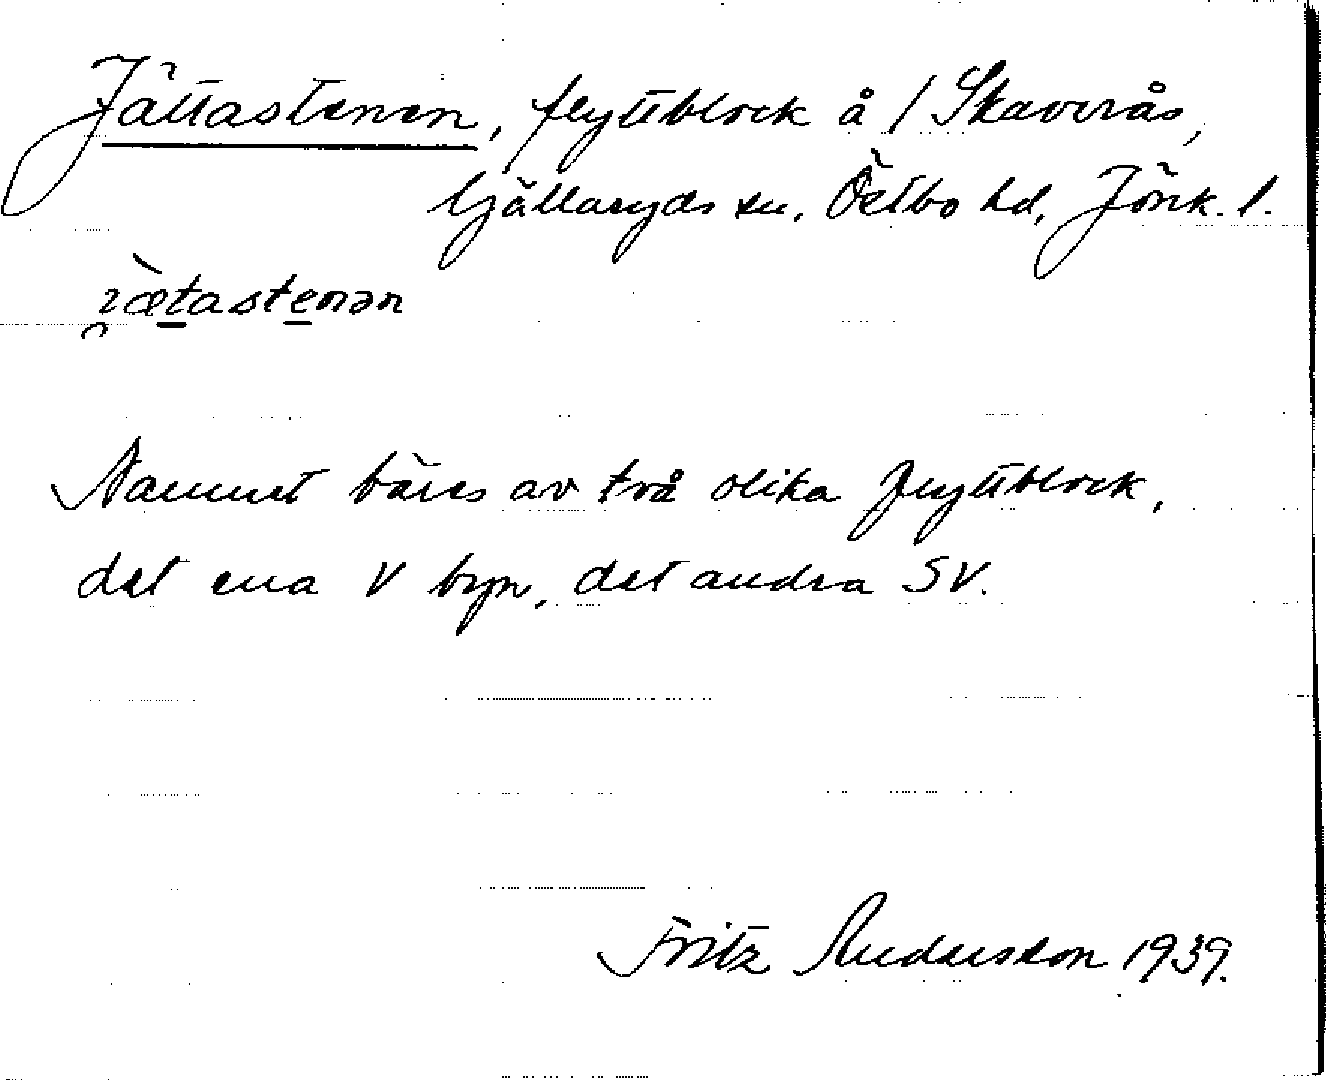 Jättastenen, flyttblock å / Skaverås,
Gällaryds sn. Östbo hd, Jönk. l.
Namnet bäres av två olika flyttblock,
det ena V byn, det andra SV.
Fritz Andersson 1939.